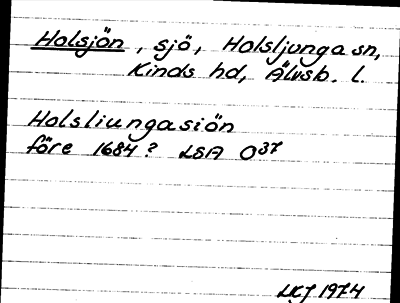 Holsjön, sjö, Holsljunga sn,
Kinds hd, Älvsb. l.
Holsliungasiön
före 1684? LSA O37
1974